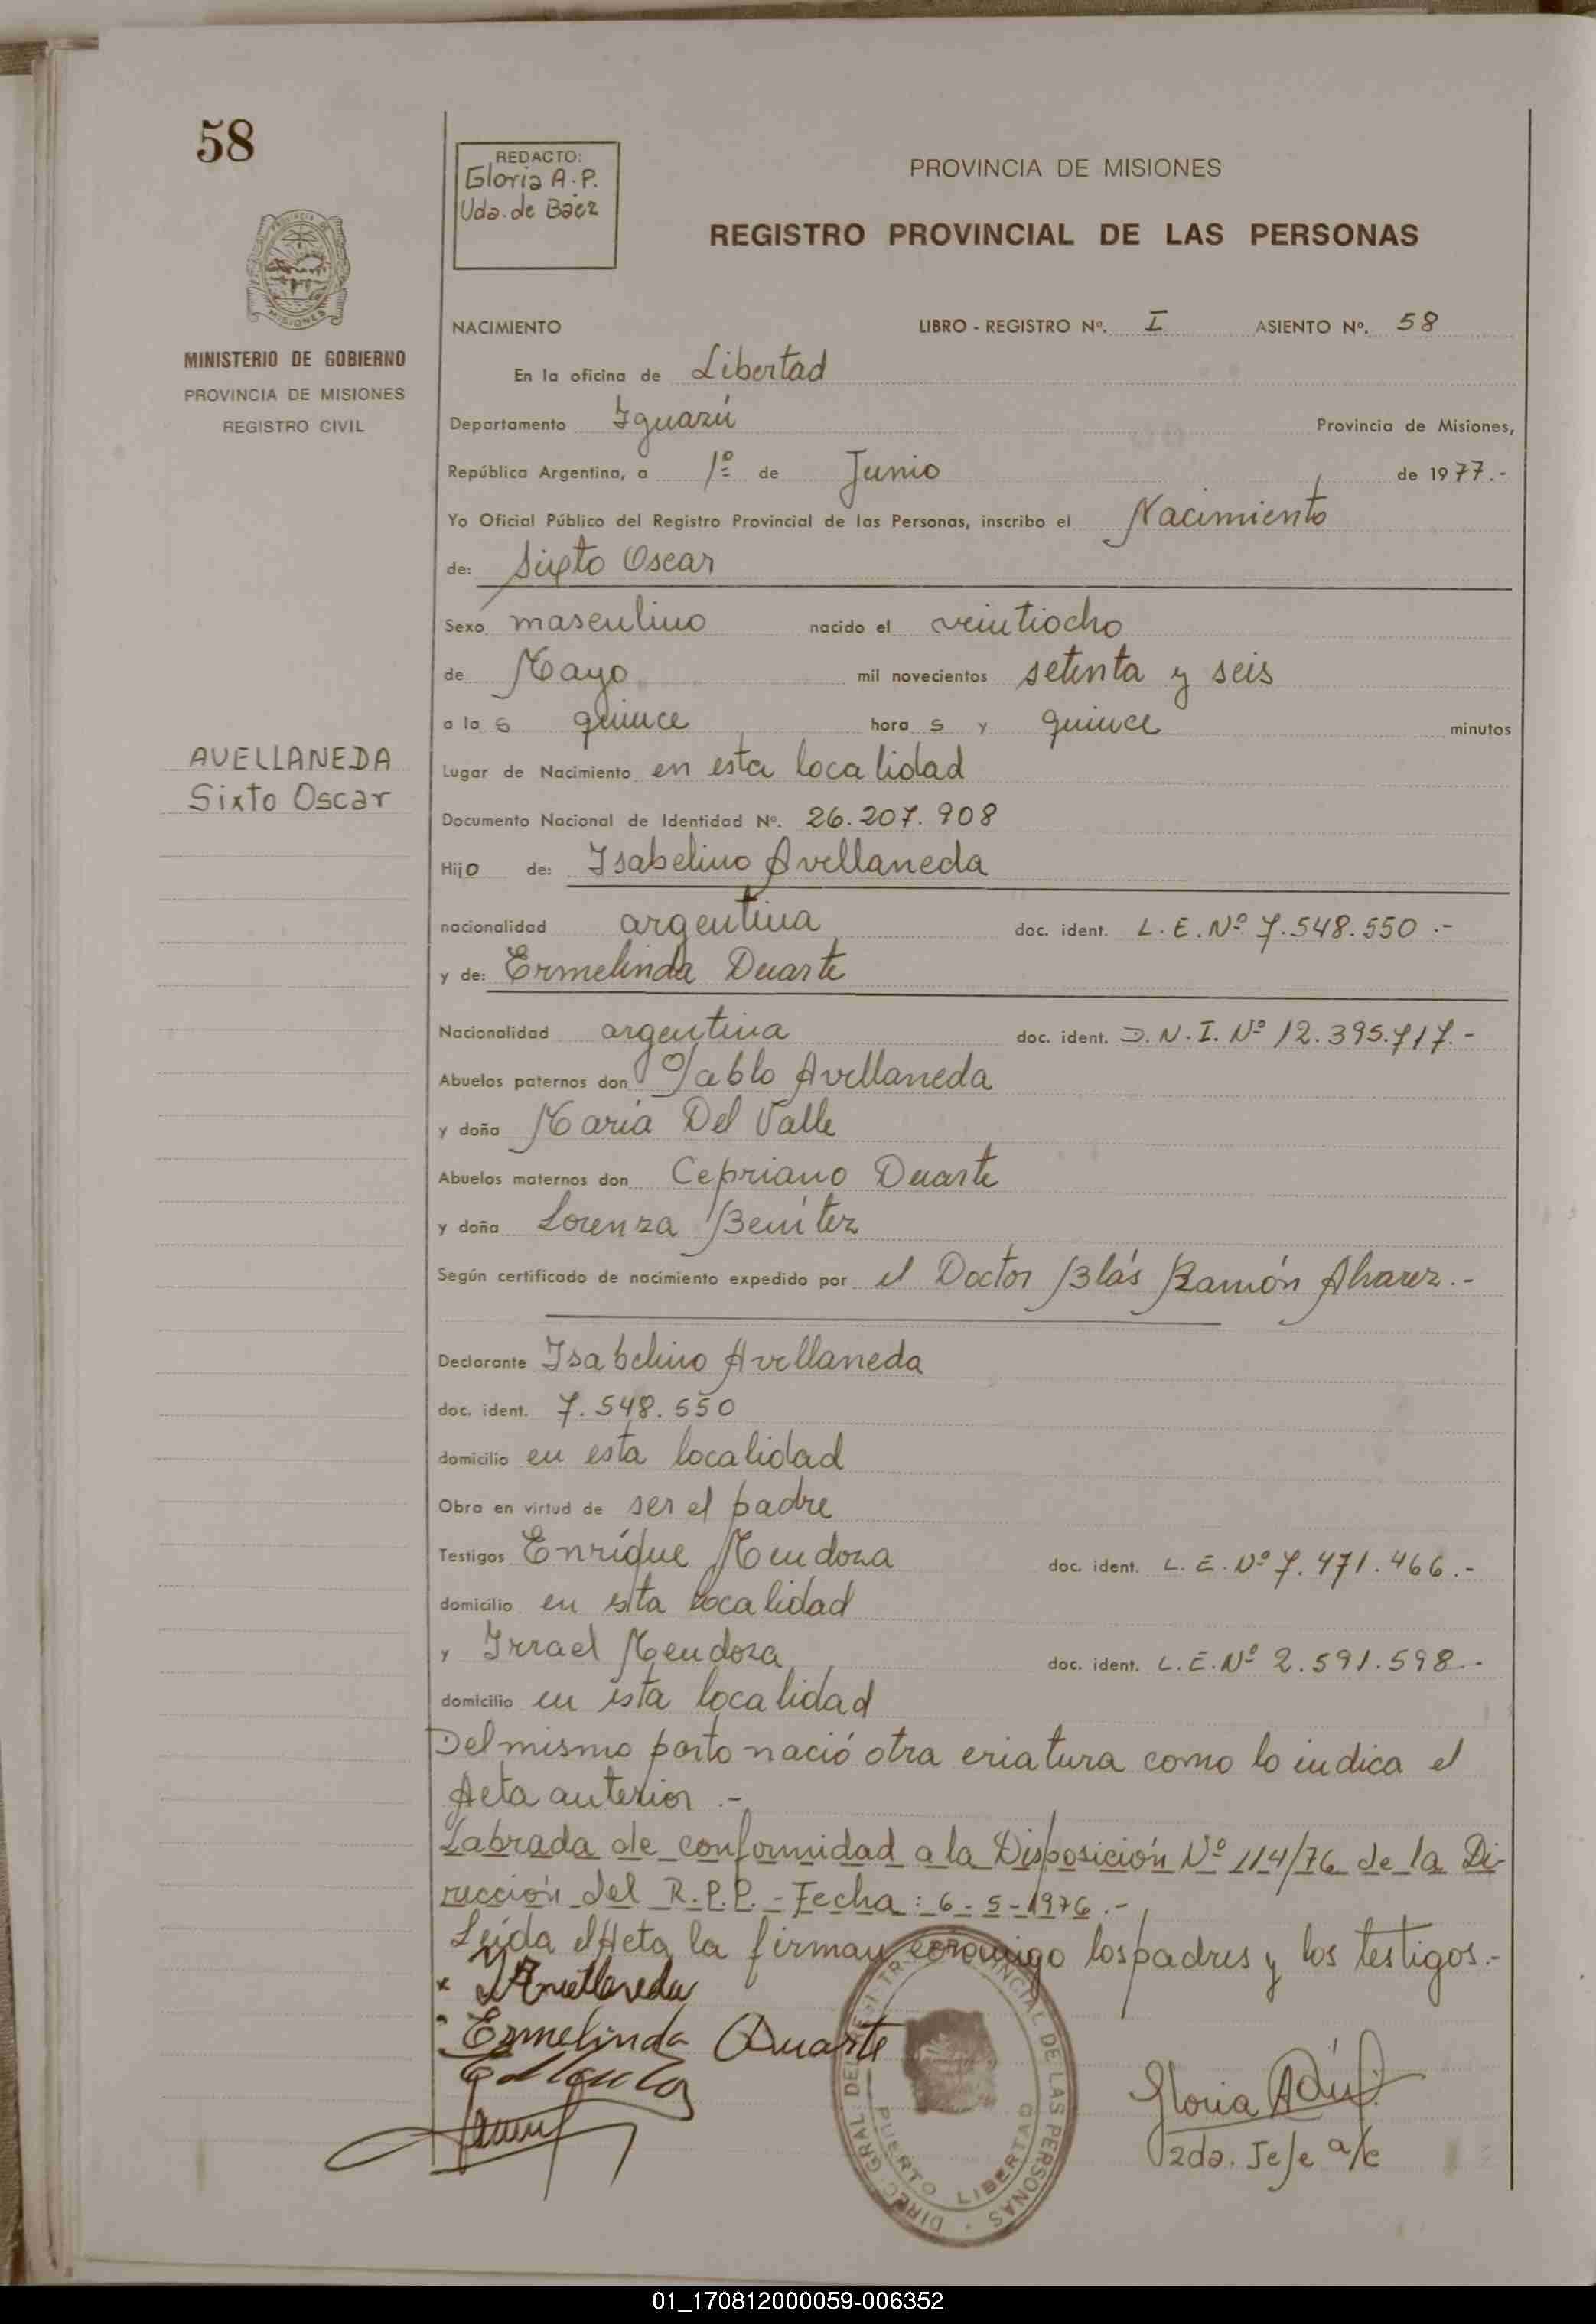 58
REDACTO:
Gloria A. P.
Vda. de Báez
PROVINCIA DE MISIONES
REGISTRO PROVINCIAL DE LAS PERSONAS
MISIONES
MINISTERIO DE GOBIERNO
PROVINCIA DE MISIONES
REGISTRO CIVIL
NACIMIENTO LIBRO - REGISTRO Nº. I ASIENTO Nº. 58
En la oficina de Libertad
Departamento Iguazú Provincia de Misiones,
República Argentina, a 1º de Junio de 1977.-
Yo Oficial Público del Registro Provincial de las Personas, inscribo el Nacimiento
de: Sixto Oscar
Sexo masculino nacido el veintiocho
de Mayo mil novecientos setenta y seis
a la s quince hora s y quince minutos
AVELLANEDA
Sixto Oscar
Lugar de Nacimiento en esta localidad
Documento Nacional de Identidad Nº. 26.207.908
Hijo de: Isabelino Avellaneda
nacionalidad argentina doc. ident. L.E.Nº 7.548.550.-
y de: Ermelinda Duarte
Nacionalidad argentina doc. ident. D.N.I. Nº 12.395.717.-
Abuelos paternos don Pablo Avellaneda
y doña María Del Valle
Abuelos maternos don Cepriano Duarte
y doña Lorenza Benítez
Según certificado de nacimiento expedido por el Doctor Blás Ramón Alvarez.-
Declarante Isabelino Avellaneda
doc. ident. 7.548.550
domicilio en esta localidad
Obra en virtud de ser el padre
Testigos Enríque Mendoza doc. ident. L.E.Nº 7.471.466.-
domicilio en esta localidad
y Irrael Mendoza doc. ident. L.E.Nº 2.591.598.-
domicilio en esta localidad
Del mismo parto nació otra criatura como lo indica el
Acta anterior.-
Labrada de conformidad a la Disposición Nº 114/76 de la Di-
rección del R.P.P.- Fecha: 6-5-1976.-
Leída el Acta la firman conmigo los padres y los testigos.-
x I Avellaneda
Ermelinda Duarte
Gloria
2da. Jefe a/c
DIREC. GRAL. DEL REGISTRO PROVINCIAL DE LAS PERSONAS
PUERTO LIBERTAD
01_170812000059-006352